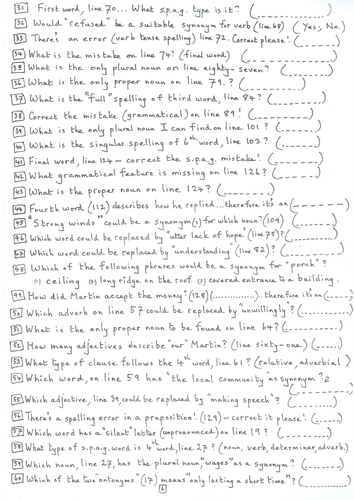 31 First word, line 70... What s.p.a.g. type is it? (............)
32 Would "refused" be a suitable synonym for verb (line 68) (Yes, No.)
33 There's an error (verb tense spelling) line 72. Correct please! (........)
34 What is the mistake on line 74? (final word) (............)
35 What is the only plural noun on line eighty-seven? (............)
36 What is the only proper noun on line 79.? (............)
37 What is the "full" spelling of third word, line 84? (............)
38 Correct the mistake (grammatical) on line 89! (............)
39 What is the only plural noun I can find on line 101? (............)
40 What is the singular spelling of 6th word, line 103? (............)
41 Final word, line 124 - correct the s.p.a.g. mistake! (............)
42 What grammatical feature is missing on line 126? (............)
43 What is the proper noun on line 124? (............)
44 Fourth word (112) describes how he replied ...therefore it's an (............)
45 "Strong winds" could be a synonym(s) for which noun? (109) (............)
46 Which word could be replaced by "utter lack of hope" (line 75)? (............)
47 Which word could be replaced by "understanding" (line 82)? (............)
48 Which of the following phrases would be a synonym for "porch"?
(1) ceiling (2) long ridge on the roof (3) covered entrance to a building.
49 How did Martin accept the money? (128) (............) therefore it's an (......)
50 Which adverb on line 57 could be replaced by "unwillingly"?
51 What is the only proper noun to be found on line 64? (............)
52 How many adjectives describe "our" Martin? (line sixty-one) (......)
53 What type of clause follows the 4th word, line 61? (relative, adverbial)
54 Which word, on line 59 has "the local community" as synonym?
55 Which adjective, line 39, could be replaced by "making speech"? (............)
56 There's a spelling error in a preposition! (129) - correct it please! (......)
57 Which word has a "silent" letter (unpronounced) on line 19? (............)
58 What type of s.p.a.g. word is 4th word, line 27? (noun, verb, determiner, adverb.)
59 Which noun, line 27, has the plural noun "wages" as a synonym? (............)
60 Which of the two "antonyms" (17) means "only lasting a short time"? (............)
6